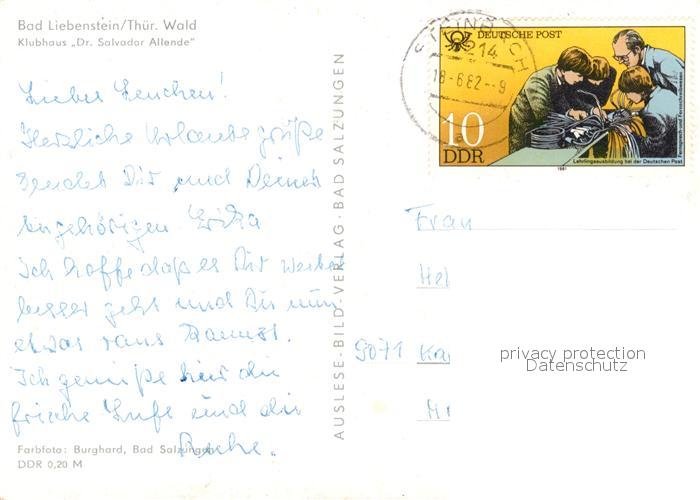 Bad Liebenstein/Thür. Wald
Klubhaus „Dr. Salvador Allende"
Liebes Lenchen!
Herzliche Urlaubsgrüße
sendet Dir und Deinen
Angehörigen Erika
Ich hoffe daß es Dir weiter
besser geht und Du nun
etwas raus kannst.
Ich genieße hier die
frische Luft und die
Ruhe.
Farbfoto: Burghard, Bad Salzungen
DDR 0,20 M
AUSLESE-BILD-VERLAG · BAD SALZUNGEN
STEINBACH
18-6.82--9
DEUTSCHE POST
10
DDR
Lehrlingsausbildung bei der Deutschen Post
Fernsprech- und Fernschreibwesen
1981
Frau
Hel
9071 Ka
privacy protection
Datenschutz